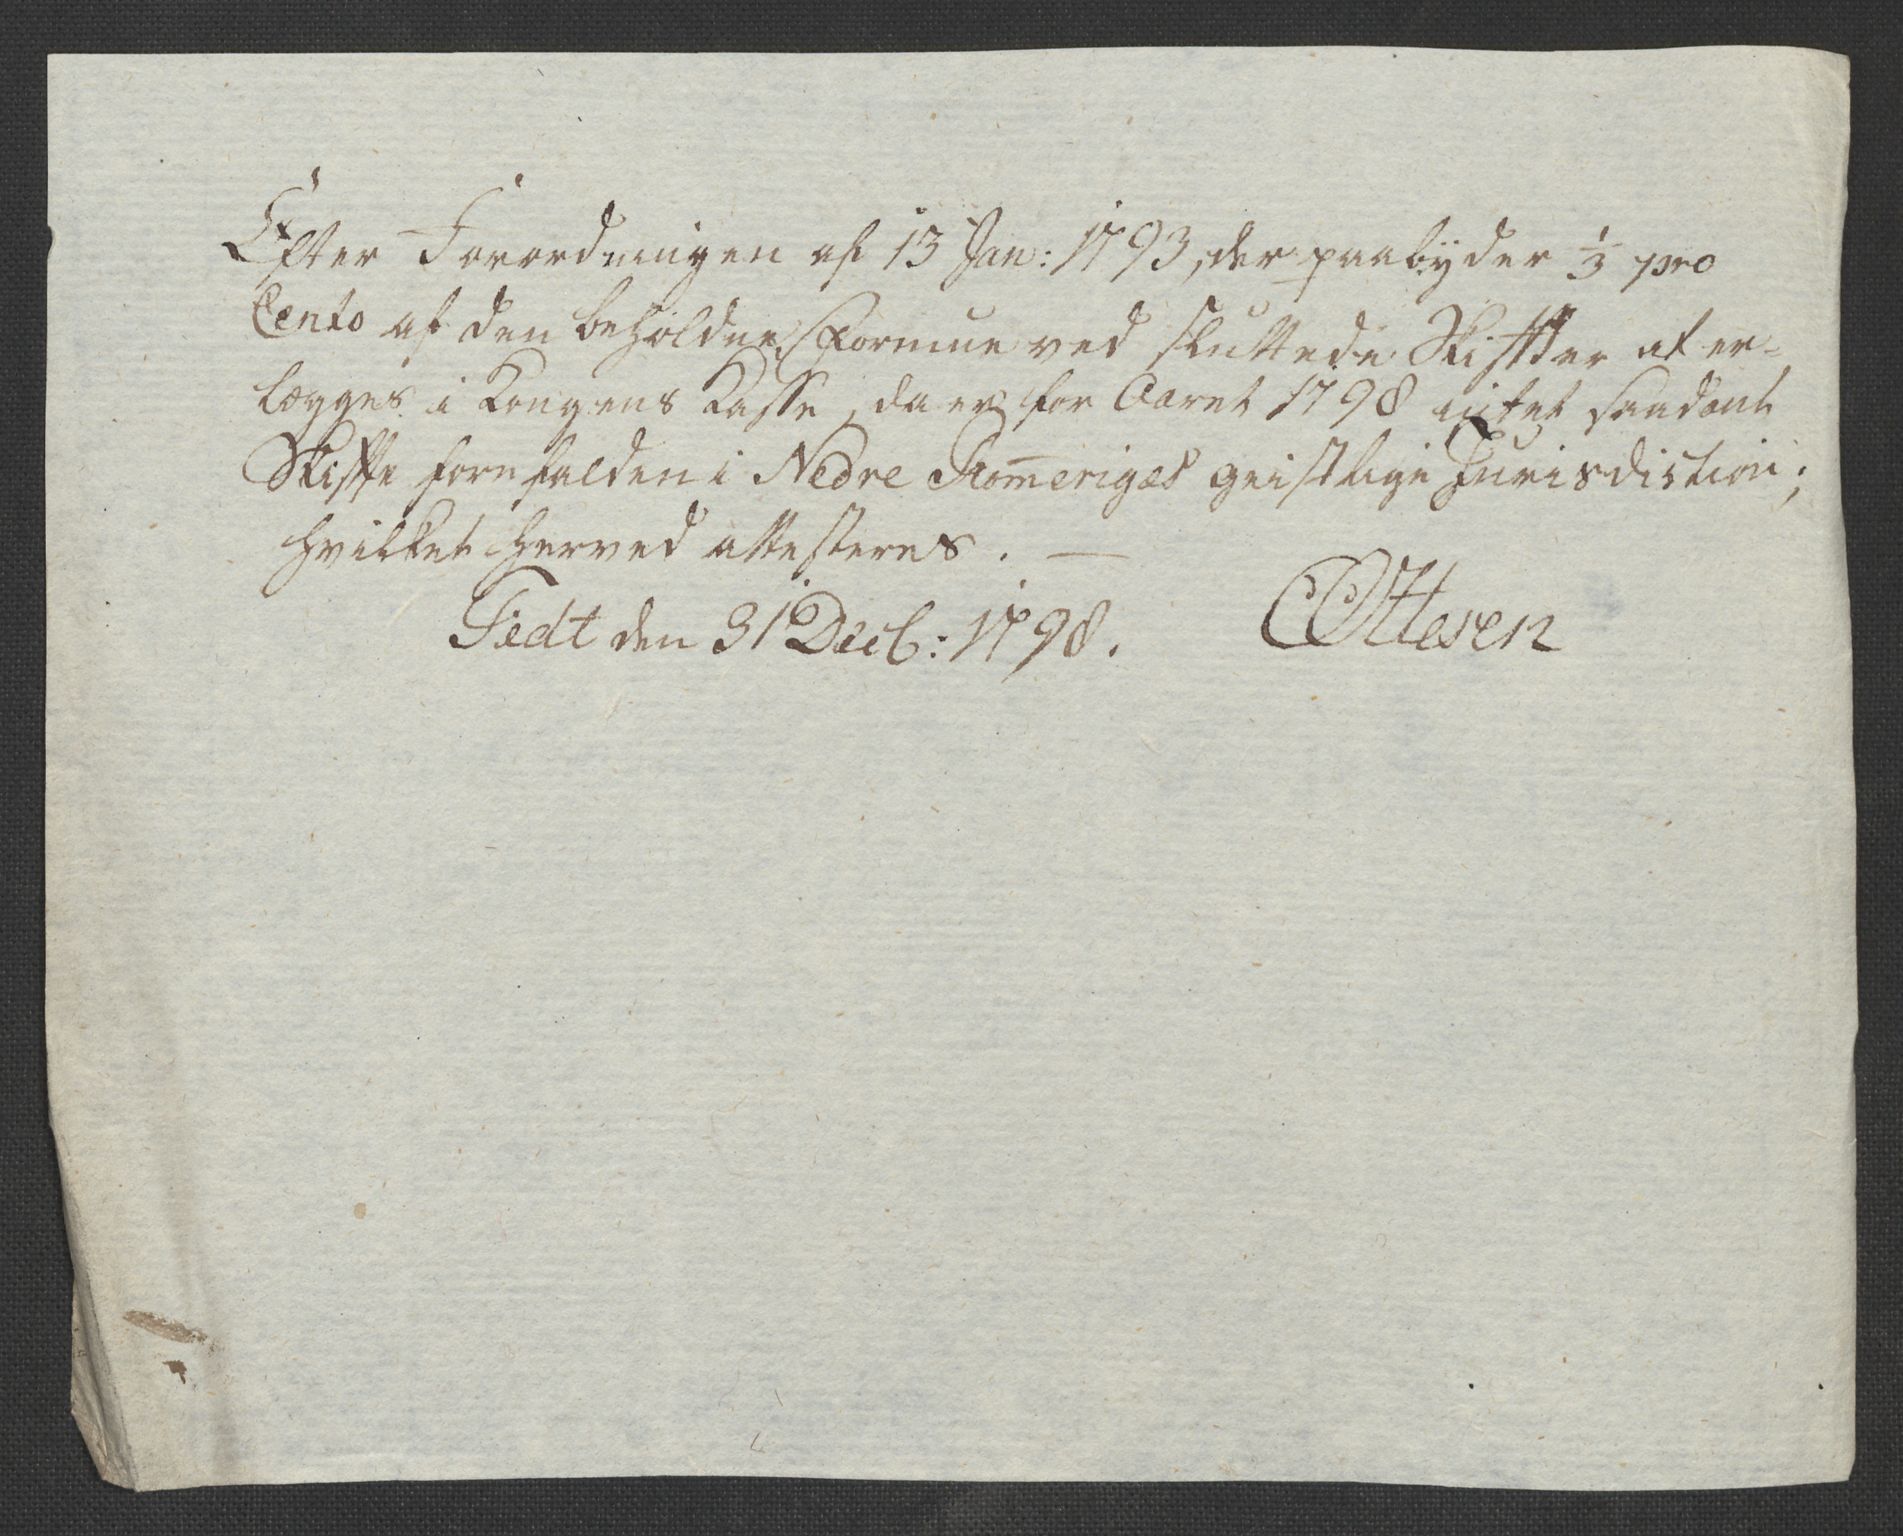 Efter Forordningen af 13 Jan: 1793, der paabÿder ⅓ pro
Cento af den beholdne Formue ved sluttede Skiftter at er-
lægges i Kongens Kasse, da er for Aaret 1798 intet saadant
Skifte forefalden i Nedre Rom̅erigес geistlige Jurisdiction;
hvilket herved attesteres. —
Fedt den 31 Decb: 1798. COttesen